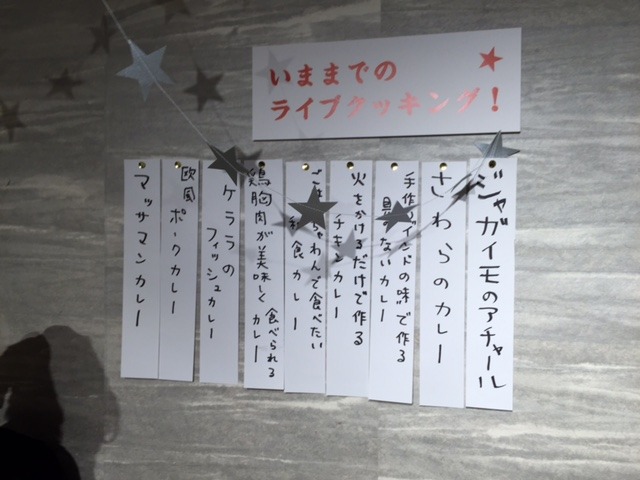 いままでの
ライブクッキング!
ジャガイモのアチャール
さわらのカレー
手作り"インドの味"で作る
具 ないカレー
火をかけるだけで作る
チキンカレー
ちゃわんで食べたい
食カレー
鶏胸肉が美味しく食べられる
カレー
ケララの
フィッシュカレー
欧風ポークカレー
マッサマンカレー